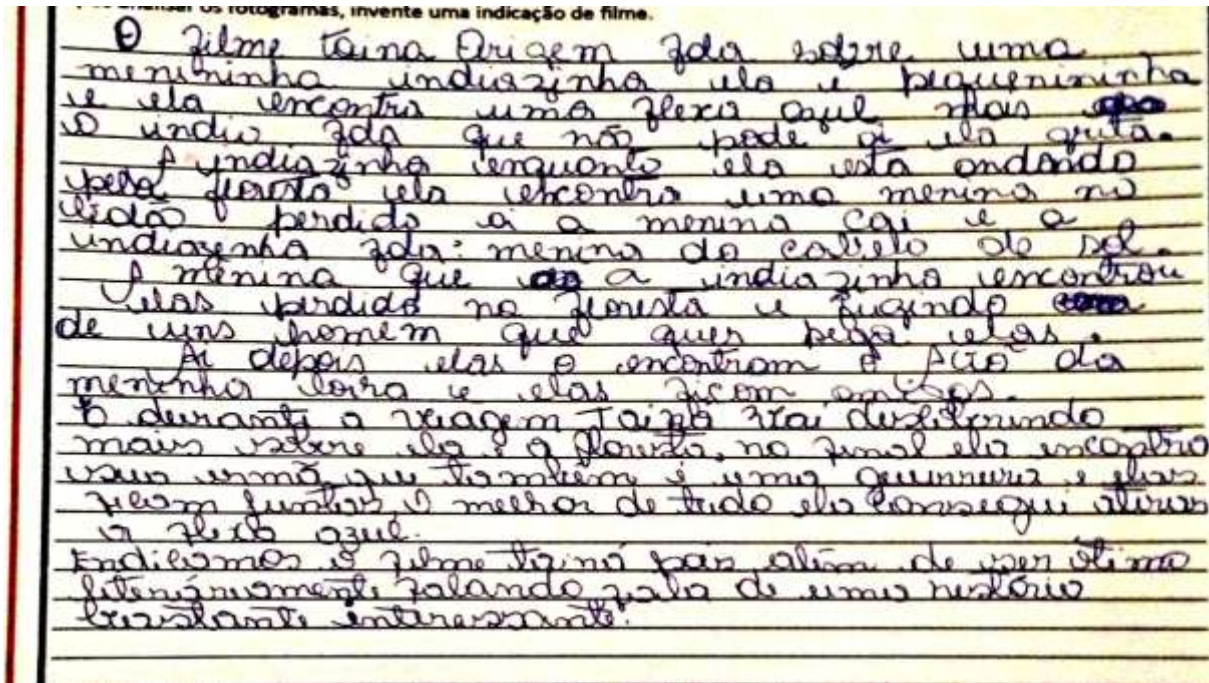 analisar os fotogramas, invente uma indicação de filme.
O filme taina Origem fala sobre uma
menininha indiazinha ela e pequenininha
e ela encontra uma flexa azul mas
o indio fala que não pode ai ela grita.
A yndiazinha enquanto ela esta andando
pela floresta ela encontra uma menina no
perdida ai a menina cai e a
indiazenha fala: menina do cabelo de sol.
A menina que a indiazinha encontrou
elas perdida na floresta e fugindo
de uns homem que quer pega elas.
Ai depois elas o encontram o da
meninha loira e elas ficam amigos.
E durante a viagem Taina vai descobrindo
mais sobre ela e a floresta, no final ela encontra
sua irmã, que também é uma guerreira e elas
ficam juntas, o melhor de tudo ela consegui
a flexa azul.
Endicamos o filme taina por além de ser ótimo
falando fala de uma história
bastante interessante.